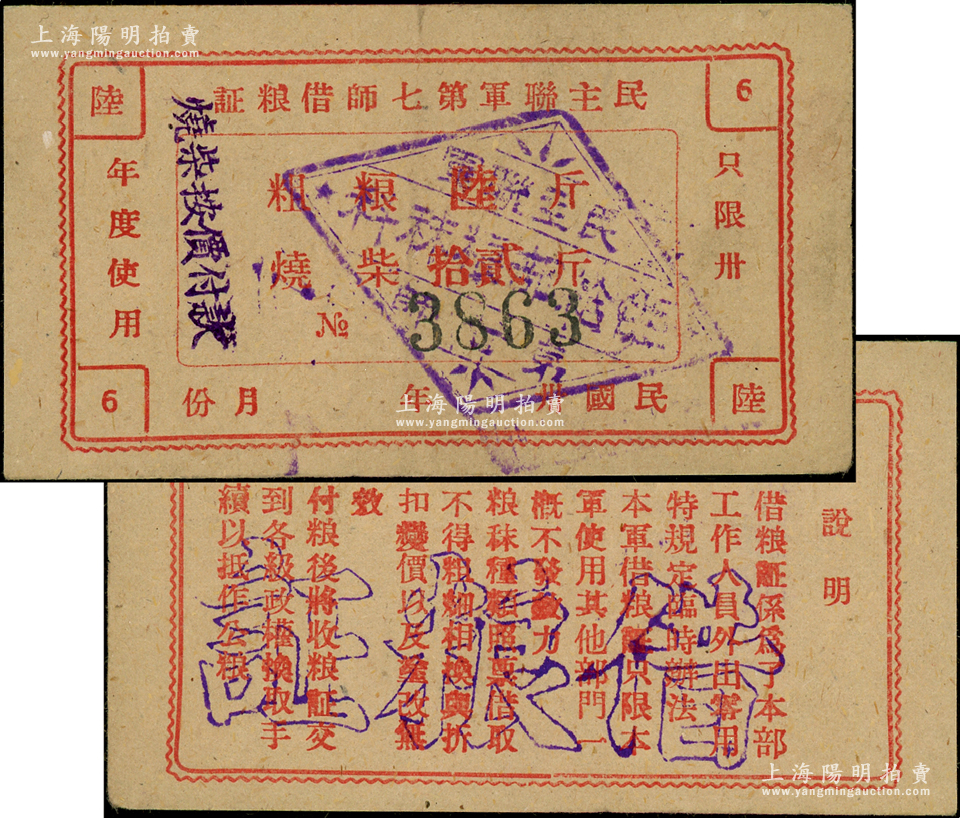 上海陽明拍賣
www.yangmingauction.com
陸
証粮借師七第軍聯主民
6
年度使用
只限卅
燒柴按價付款
粗粮陸斤
燒柴拾貳斤
№ 3863
民主聯軍
6
份月 年 卅國民
陸
上海陽明拍賣
www.yangmingauction.com
說明
借粮証係為了本部
工作人員外出零用
特規定臨時辦法
本軍借粮証只限本
軍使用其他部門一
概不發生效力
粮秣種類照票借取
不得粗細相換與折
扣變價以及塗改無
效
付粮後將收粮証交
到各級政權換取手
續以抵作公粮
証粮借
上海陽明拍賣
www.yangmingauction.com